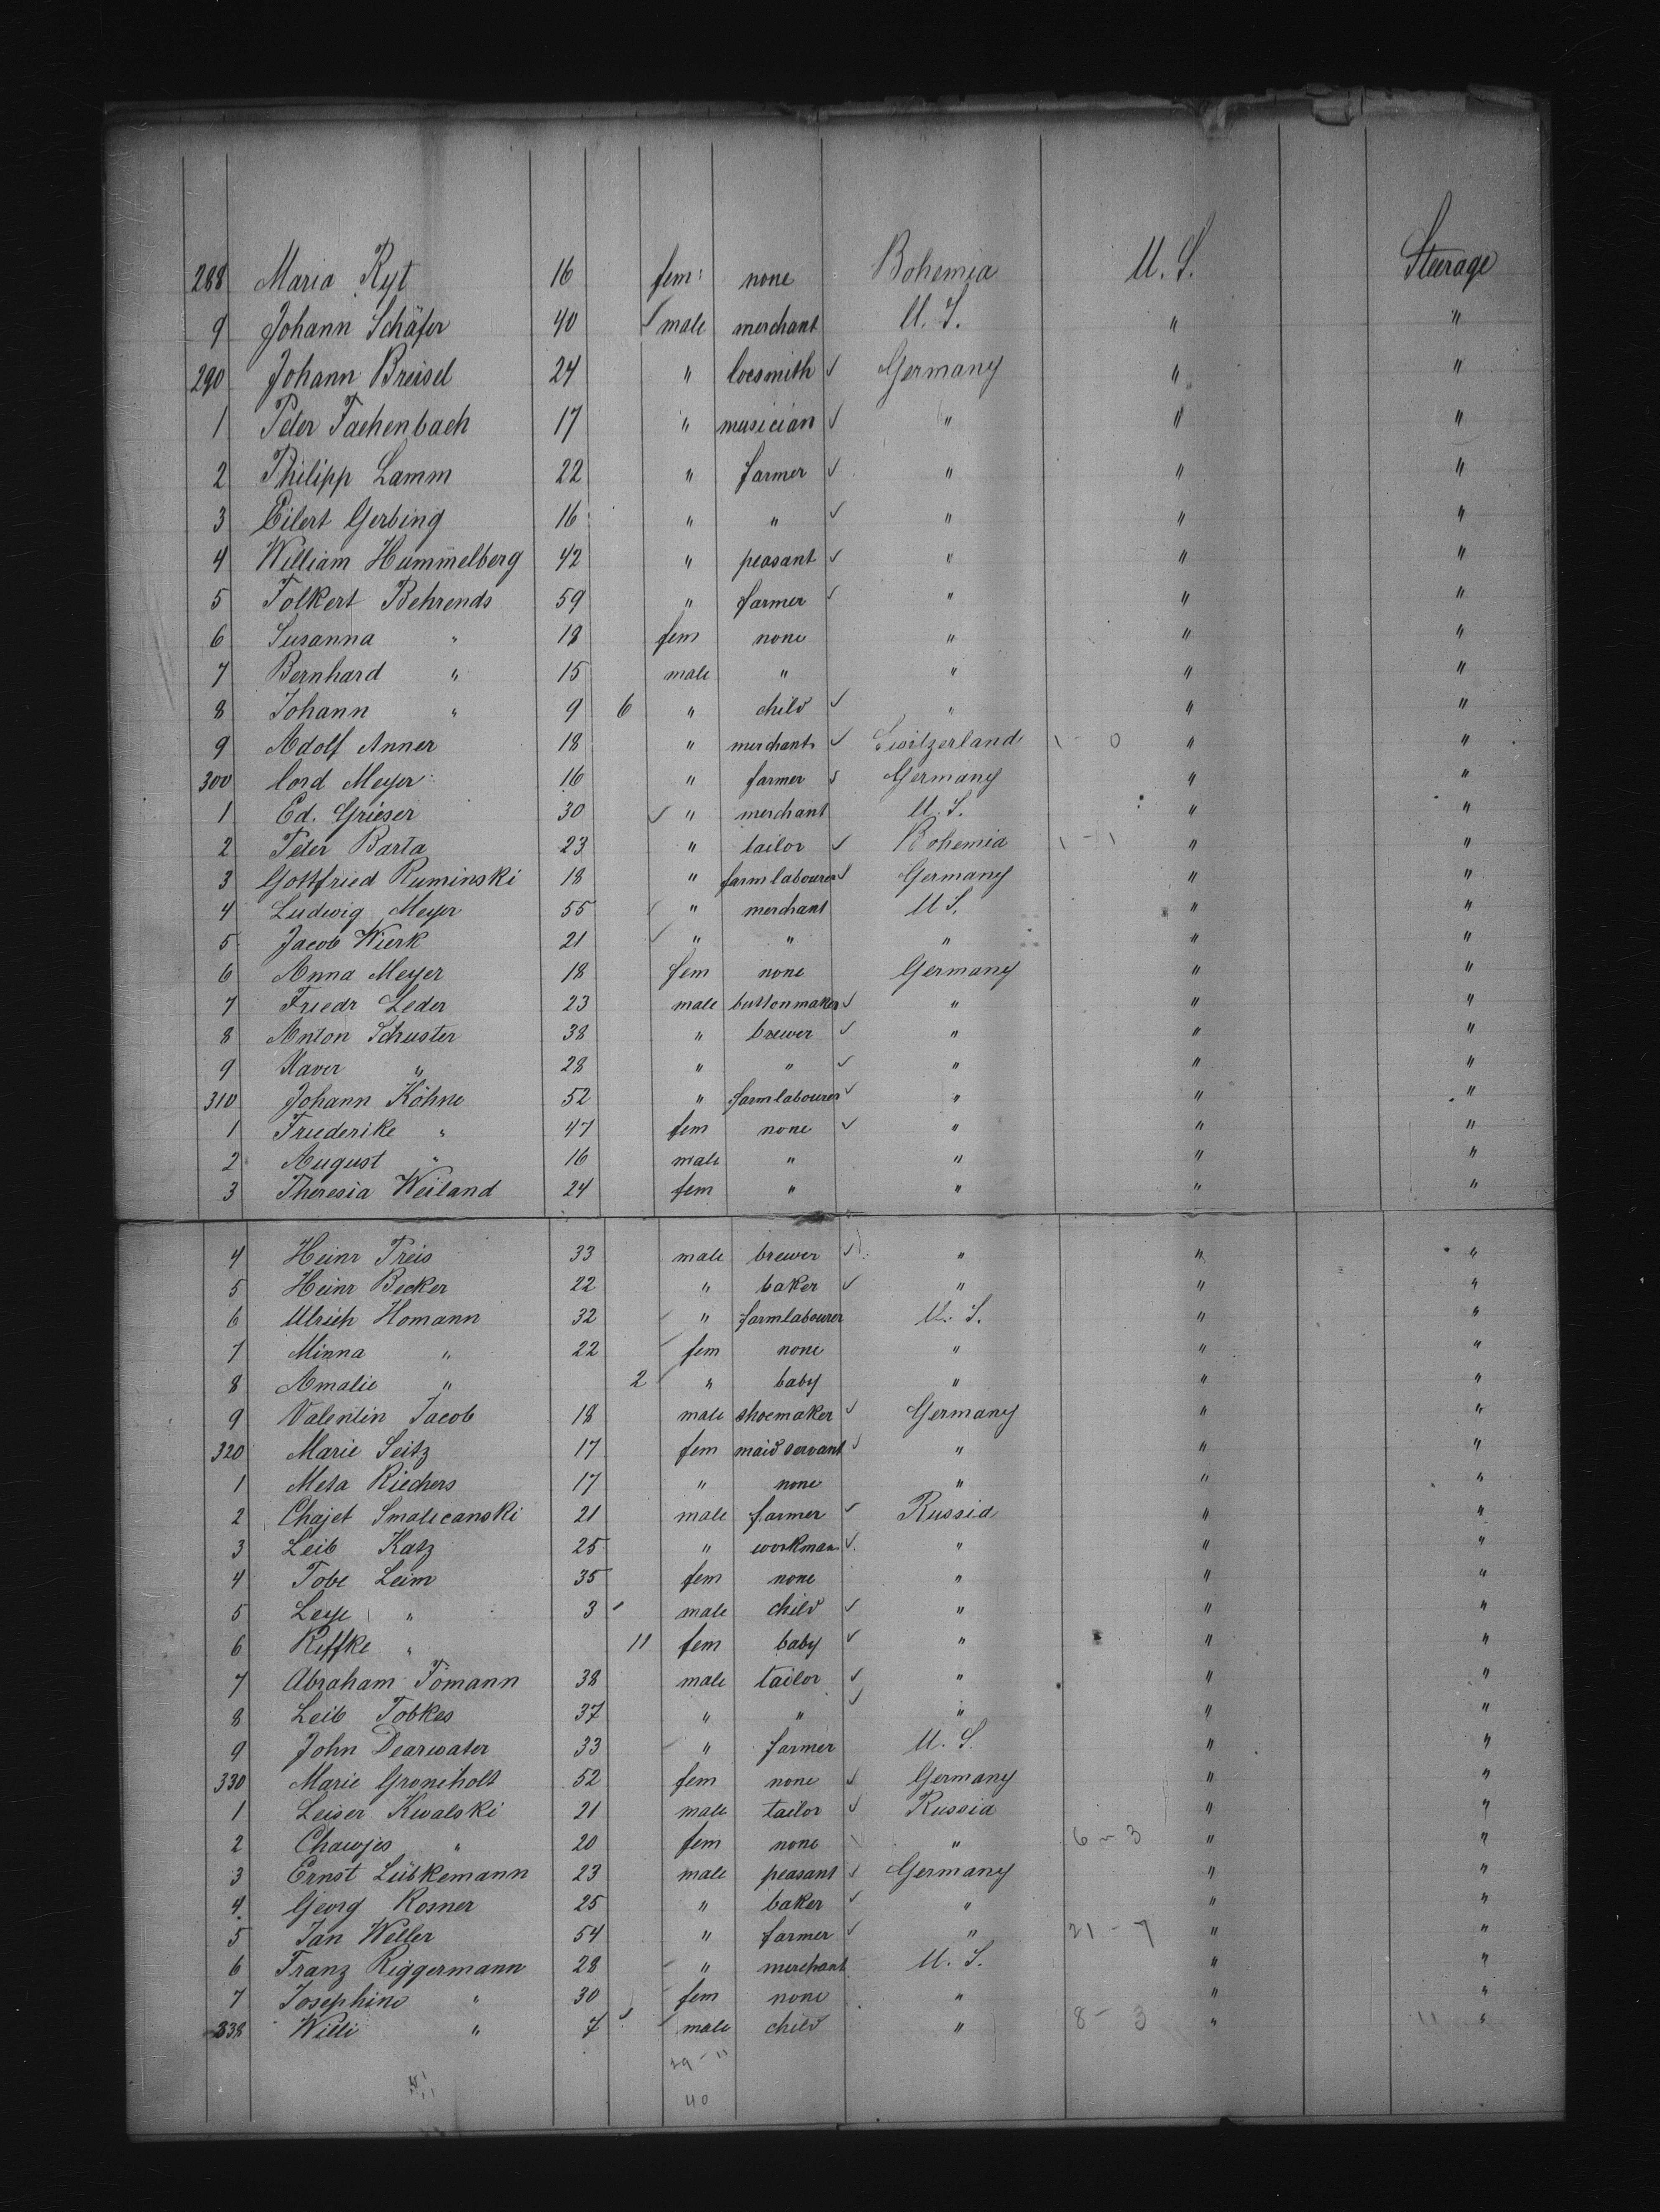 288 Maria Ryt 16 fem: none Bohemia U. S. Steerage
9 Johann Schäfer 40 ✓ male merchant U. S. " "
290 Johann Breisel 24 " locsmith ✓ Germany " "
1 Peter Fachenbach 17 " musician ✓ " " "
2 Philipp Lamm 22 " farmer ✓ " " "
3 Eilert Gerbing 16 " " ✓ " " "
4 William Hummelberg 42 " peasant ✓ " " "
5 Folkert Behrends 59 " farmer ✓ " " "
6 Susanna " 18 fem none " " "
7 Bernhard " 15 male " " " "
8 Johann " 9 6 " child ✓ " " "
9 Adolf Anner 18 " merchant ✓ Switzerland 1 - 0 " "
300 Cord Meyer 16 " farmer ✓ Germany " "
1 Ed. Grieser 30 ✓ " merchant U. S. " "
2 Peter Barta 23 " tailor ✓ Bohemia 1 - 1 " "
3 Gottfried Ruminski 18 " farmlabourer ✓ Germany " "
4 Ludwig Meyer 55 ✓ " merchant U S. " "
5 Jacob Wierk 21 ✓ " " " " "
6 Anna Meyer 18 fem none Germany " "
7 Friedr Leder 23 male buttonmaker ✓ " " "
8 Anton Schuster 38 " brewer ✓ " " "
9 Xaver " 28 " " ✓ " " "
310 Johann Köhne 52 " farmlabourer ✓ " " "
1 Friederike " 47 fem none ✓ " " "
2 August " 16 male " " " "
3 Theresia Weiland 24 fem " " " "
4 Heinr Treis 33 male brewer ✓ " " "
5 Heinr Becker 22 " baker ✓ " " "
6 Ulrich Homann 32 " farmlabourer U. S. " "
7 Minna " 22 fem none " " "
8 Amalie " 2 " baby " " "
9 Valentin Jacob 18 male shoemaker ✓ Germany " "
320 Marie Seitz 17 fem maidservant ✓ " " "
1 Meta Riechers 17 " none " " "
2 Chajet Smalecanski 21 male farmer ✓ Russia " "
3 Leib Katz 25 " workman ✓ " " "
4 Tobe Leim 35 fem none " " "
5 Leye " 3 male child ✓ " " "
6 Riffke " 11 fem baby ✓ " " "
7 Abraham Tomann 38 male tailor ✓ " " "
8 Leib Tobkes 37 " " ✓ " " "
9 John Dearwater 33 " farmer U. S. " "
330 Marie Groneholt 52 fem none ✓ Germany " "
1 Leiser Kwalski 21 male tailor ✓ Russia " "
2 Chawjes " 20 fem none " 6 - 3 " "
3 Ernst Lübkemann 23 male peasant ✓ Germany " "
4 Georg Rosner 25 " baker ✓ " " "
5 Jan Weller 54 " farmer ✓ " 21 - 7 " "
6 Franz Riggermann 28 " merchant U. S. " "
7 Josephine " 30 fem none " " "
338 Willi " 7 male child " 8 - 3 " 11 "
29 - 11
40